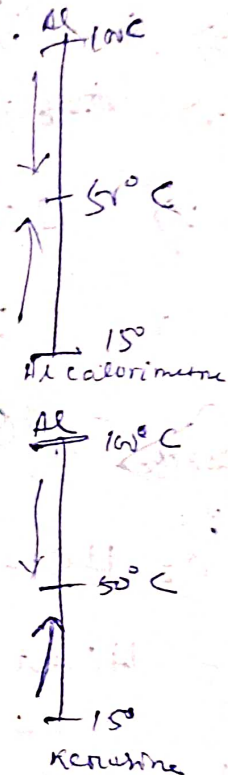 Al
100°C
50° C
15°
Al calorimetre
Al
100° C
50° C
15°
Kerosine